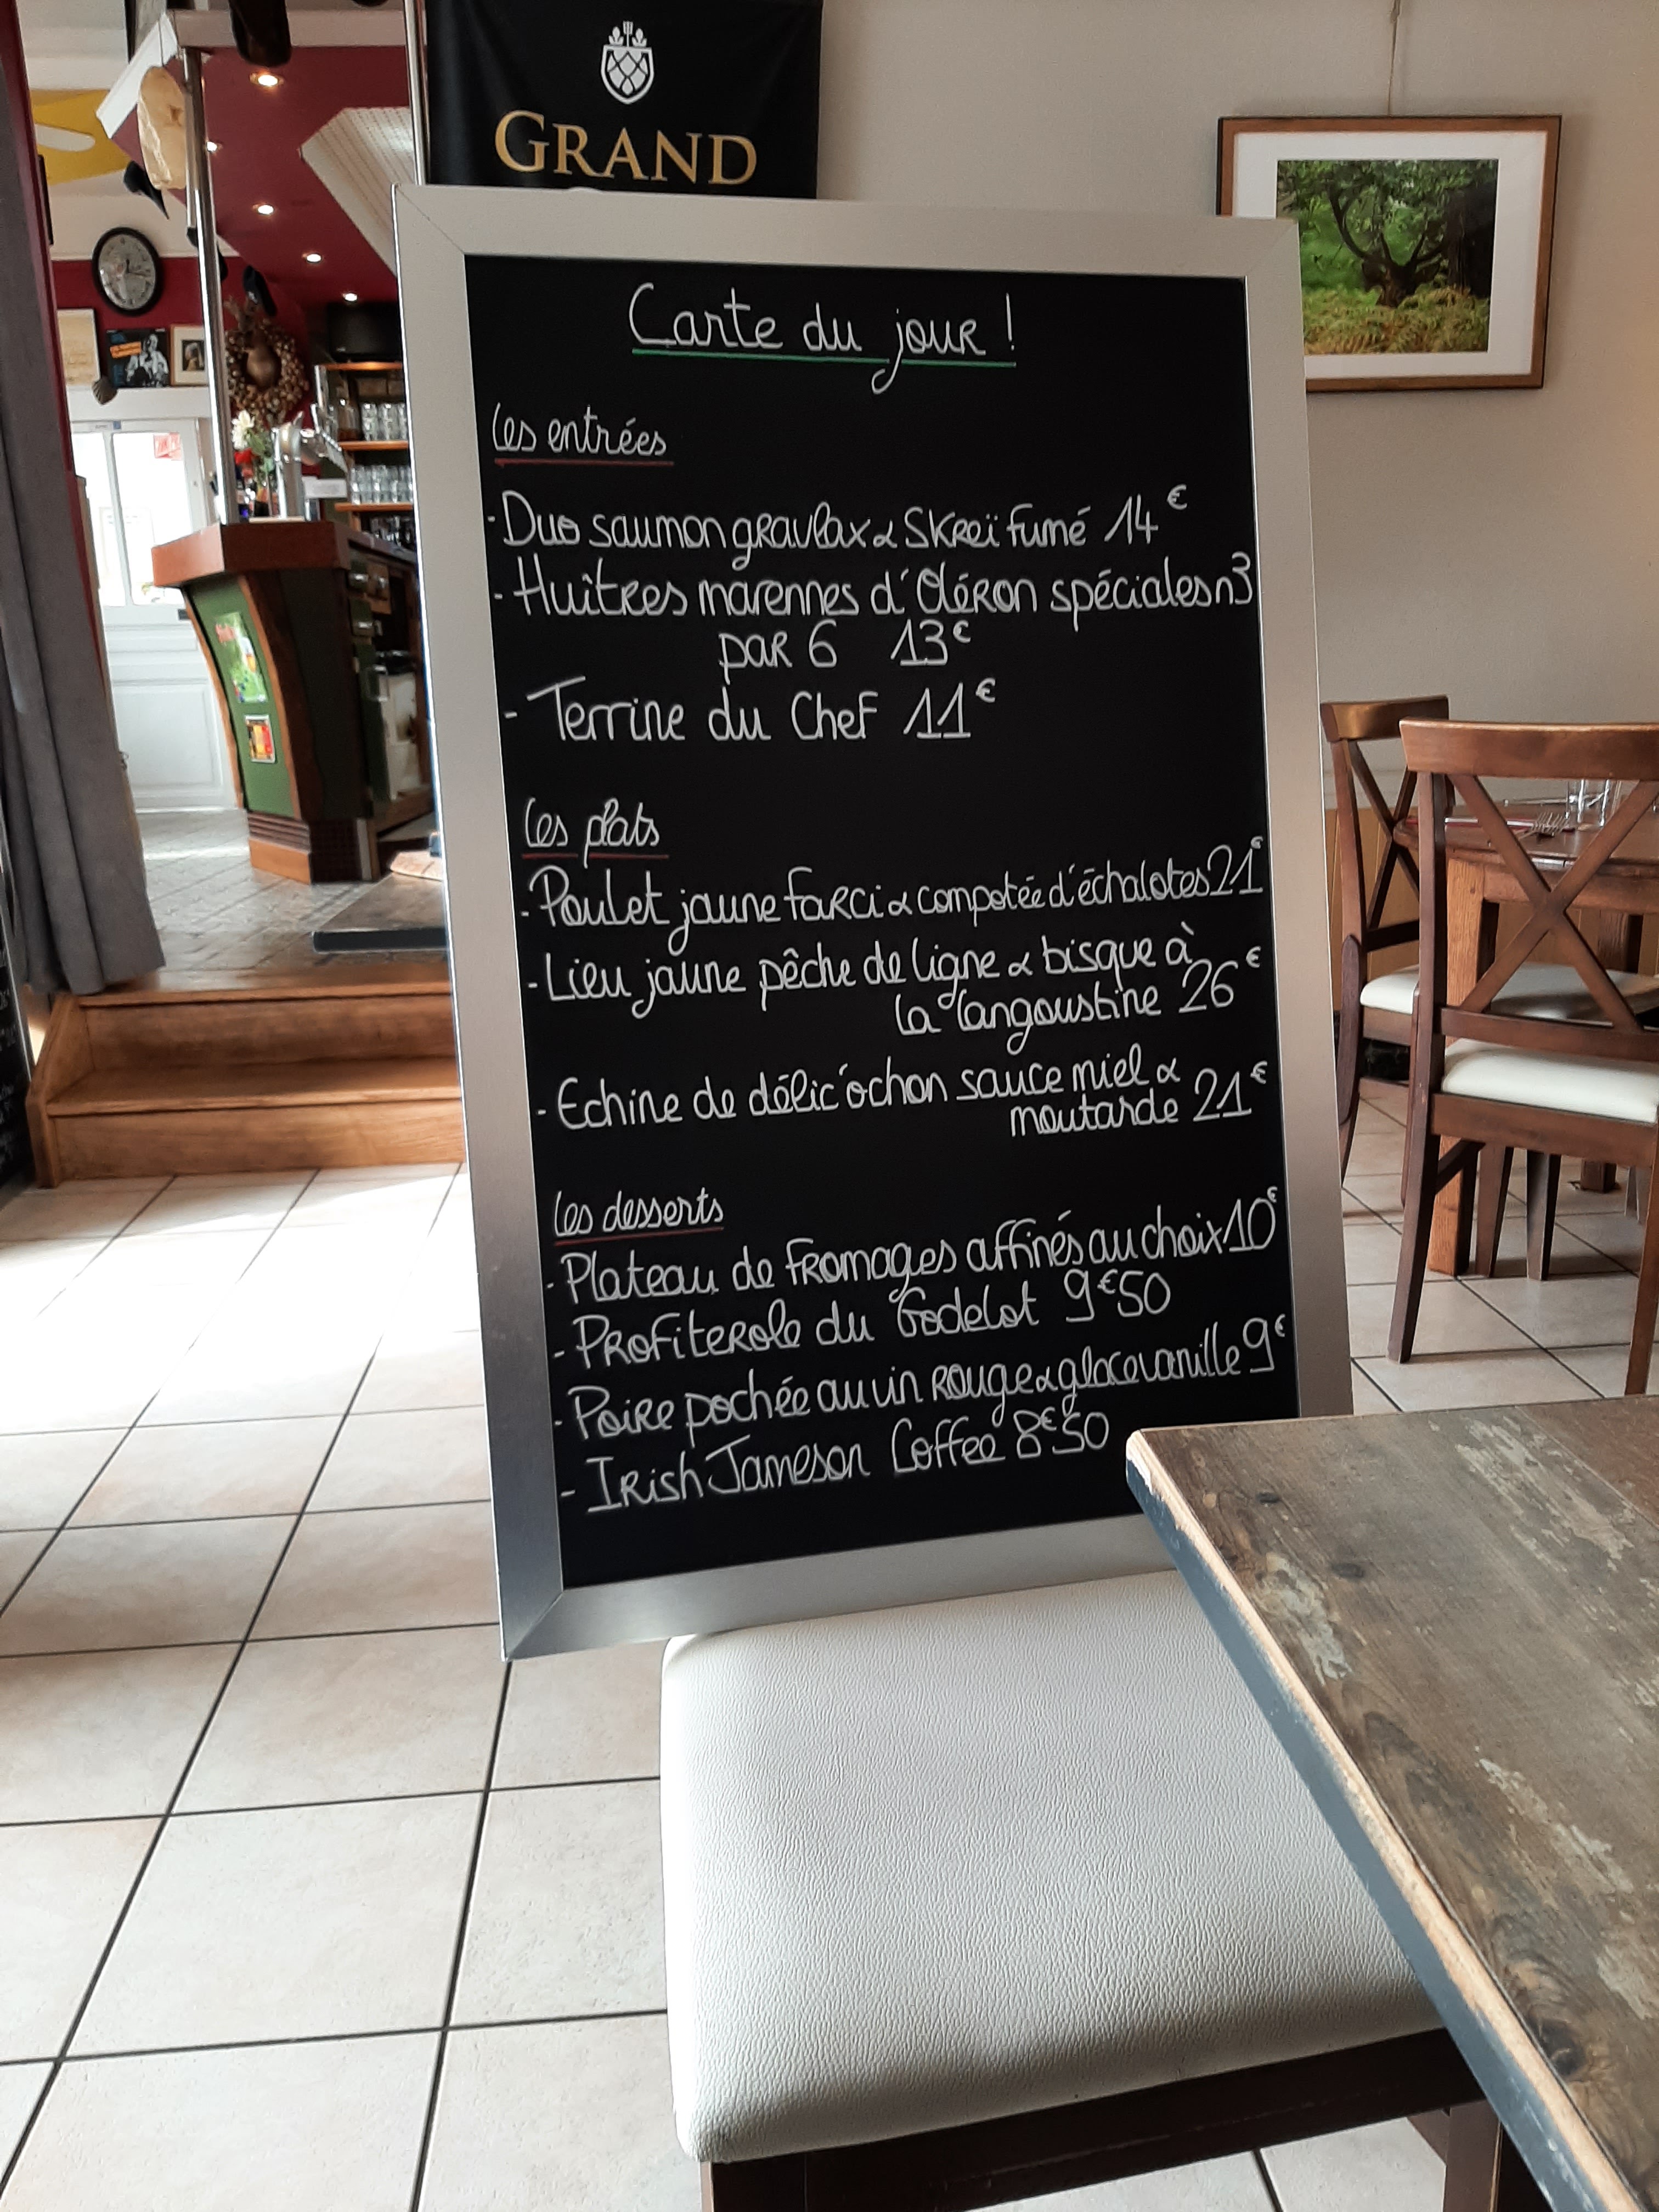 GRAND
Carte du jour !
Les entrées
- Duo saumon gravlax & Skreï fumé 14€
- Huîtres marennes d'Oléron spéciales n3
par 6 13€
- Terrine du Chef 11€
Les plats
- Poulet jaune farci & compotée d'échalotes 21€
- Lieu jaune pêche de ligne & bisque à
la langoustine 26€
- Echine de délic'ochon sauce miel &
moutarde 21€
Les desserts
- Plateau de fromages affinés au choix 10€
- Profiterole du Godelot 9€50
- Poire pochée au vin rouge & glace vanille 9€
- Irish Jameson Coffee 8€50